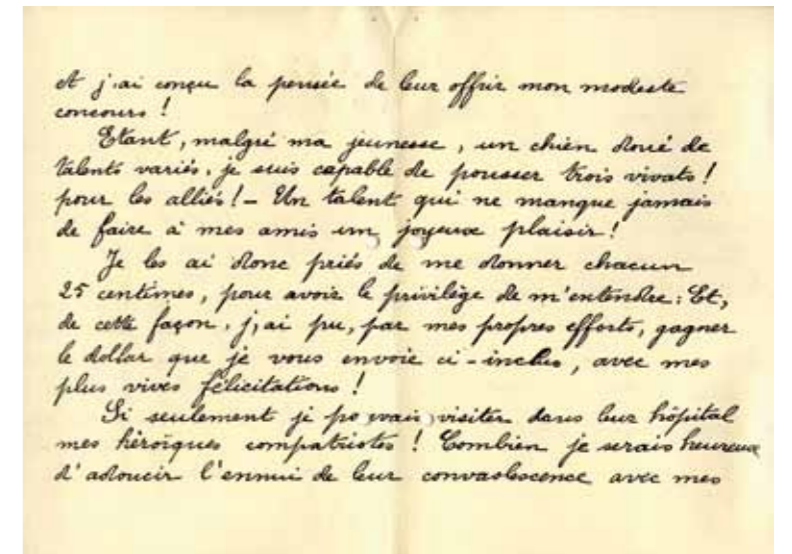 Et j'ai conçu la pensée de leur offrir mon modeste
concours !
Etant, malgré ma jeunesse, un chien doué de
talents variés, je suis capable de pousser trois vivats !
pour les alliés ! – Un talent qui ne manque jamais
de faire à mes amis un joyeux plaisir !
Je les ai donc priés de me donner chacun
25 centimes, pour avoir le privilège de m'entendre : Et,
de cette façon, j'ai pu, par mes propres efforts, gagner
le dollar que je vous envoie ci-inclus, avec mes
plus vives félicitations !
Si seulement je pouvais visiter dans leur hôpital
mes héroïques compatriotes ! Combien je serais heureux
d'adoucir l'ennui de leur convalescence avec mes